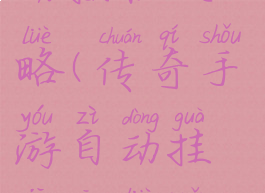 lüè chuán qí shǒu
略(传奇手
yóu zì dòng guà
游自动挂